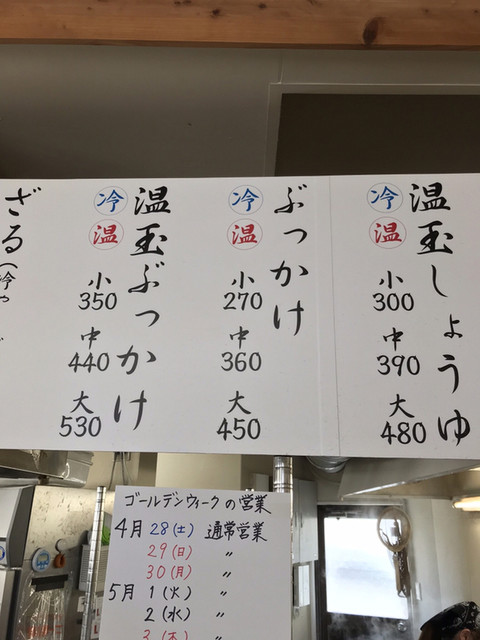 温玉しょうゆ
冷
温
小
300
中
390
大
480
ぶっかけ
冷
温
小
270
中
360
大
450
温玉ぶっかけ
冷
温
小
350
中
440
大
530
ざる(冷や
ゴールデンウィークの営業
4月 28(土) 通常営業
29(日) 〃
30(月) 〃
5月 1(火) 〃
2(水) 〃
3(木) 〃